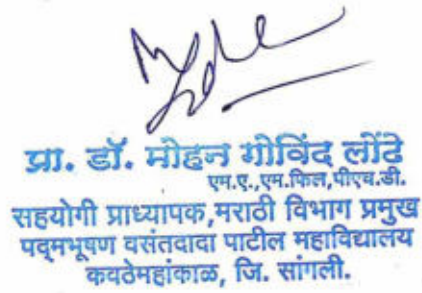 प्रा. डॉ. मोहन गोविंद लोंढे
एम.ए.,एम.फिल,पीएच.डी.
सहयोगी प्राध्यापक,मराठी विभाग प्रमुख
पद्मभूषण वसंतदादा पाटील महाविद्यालय
कवठेमहांकाळ, जि. सांगली.